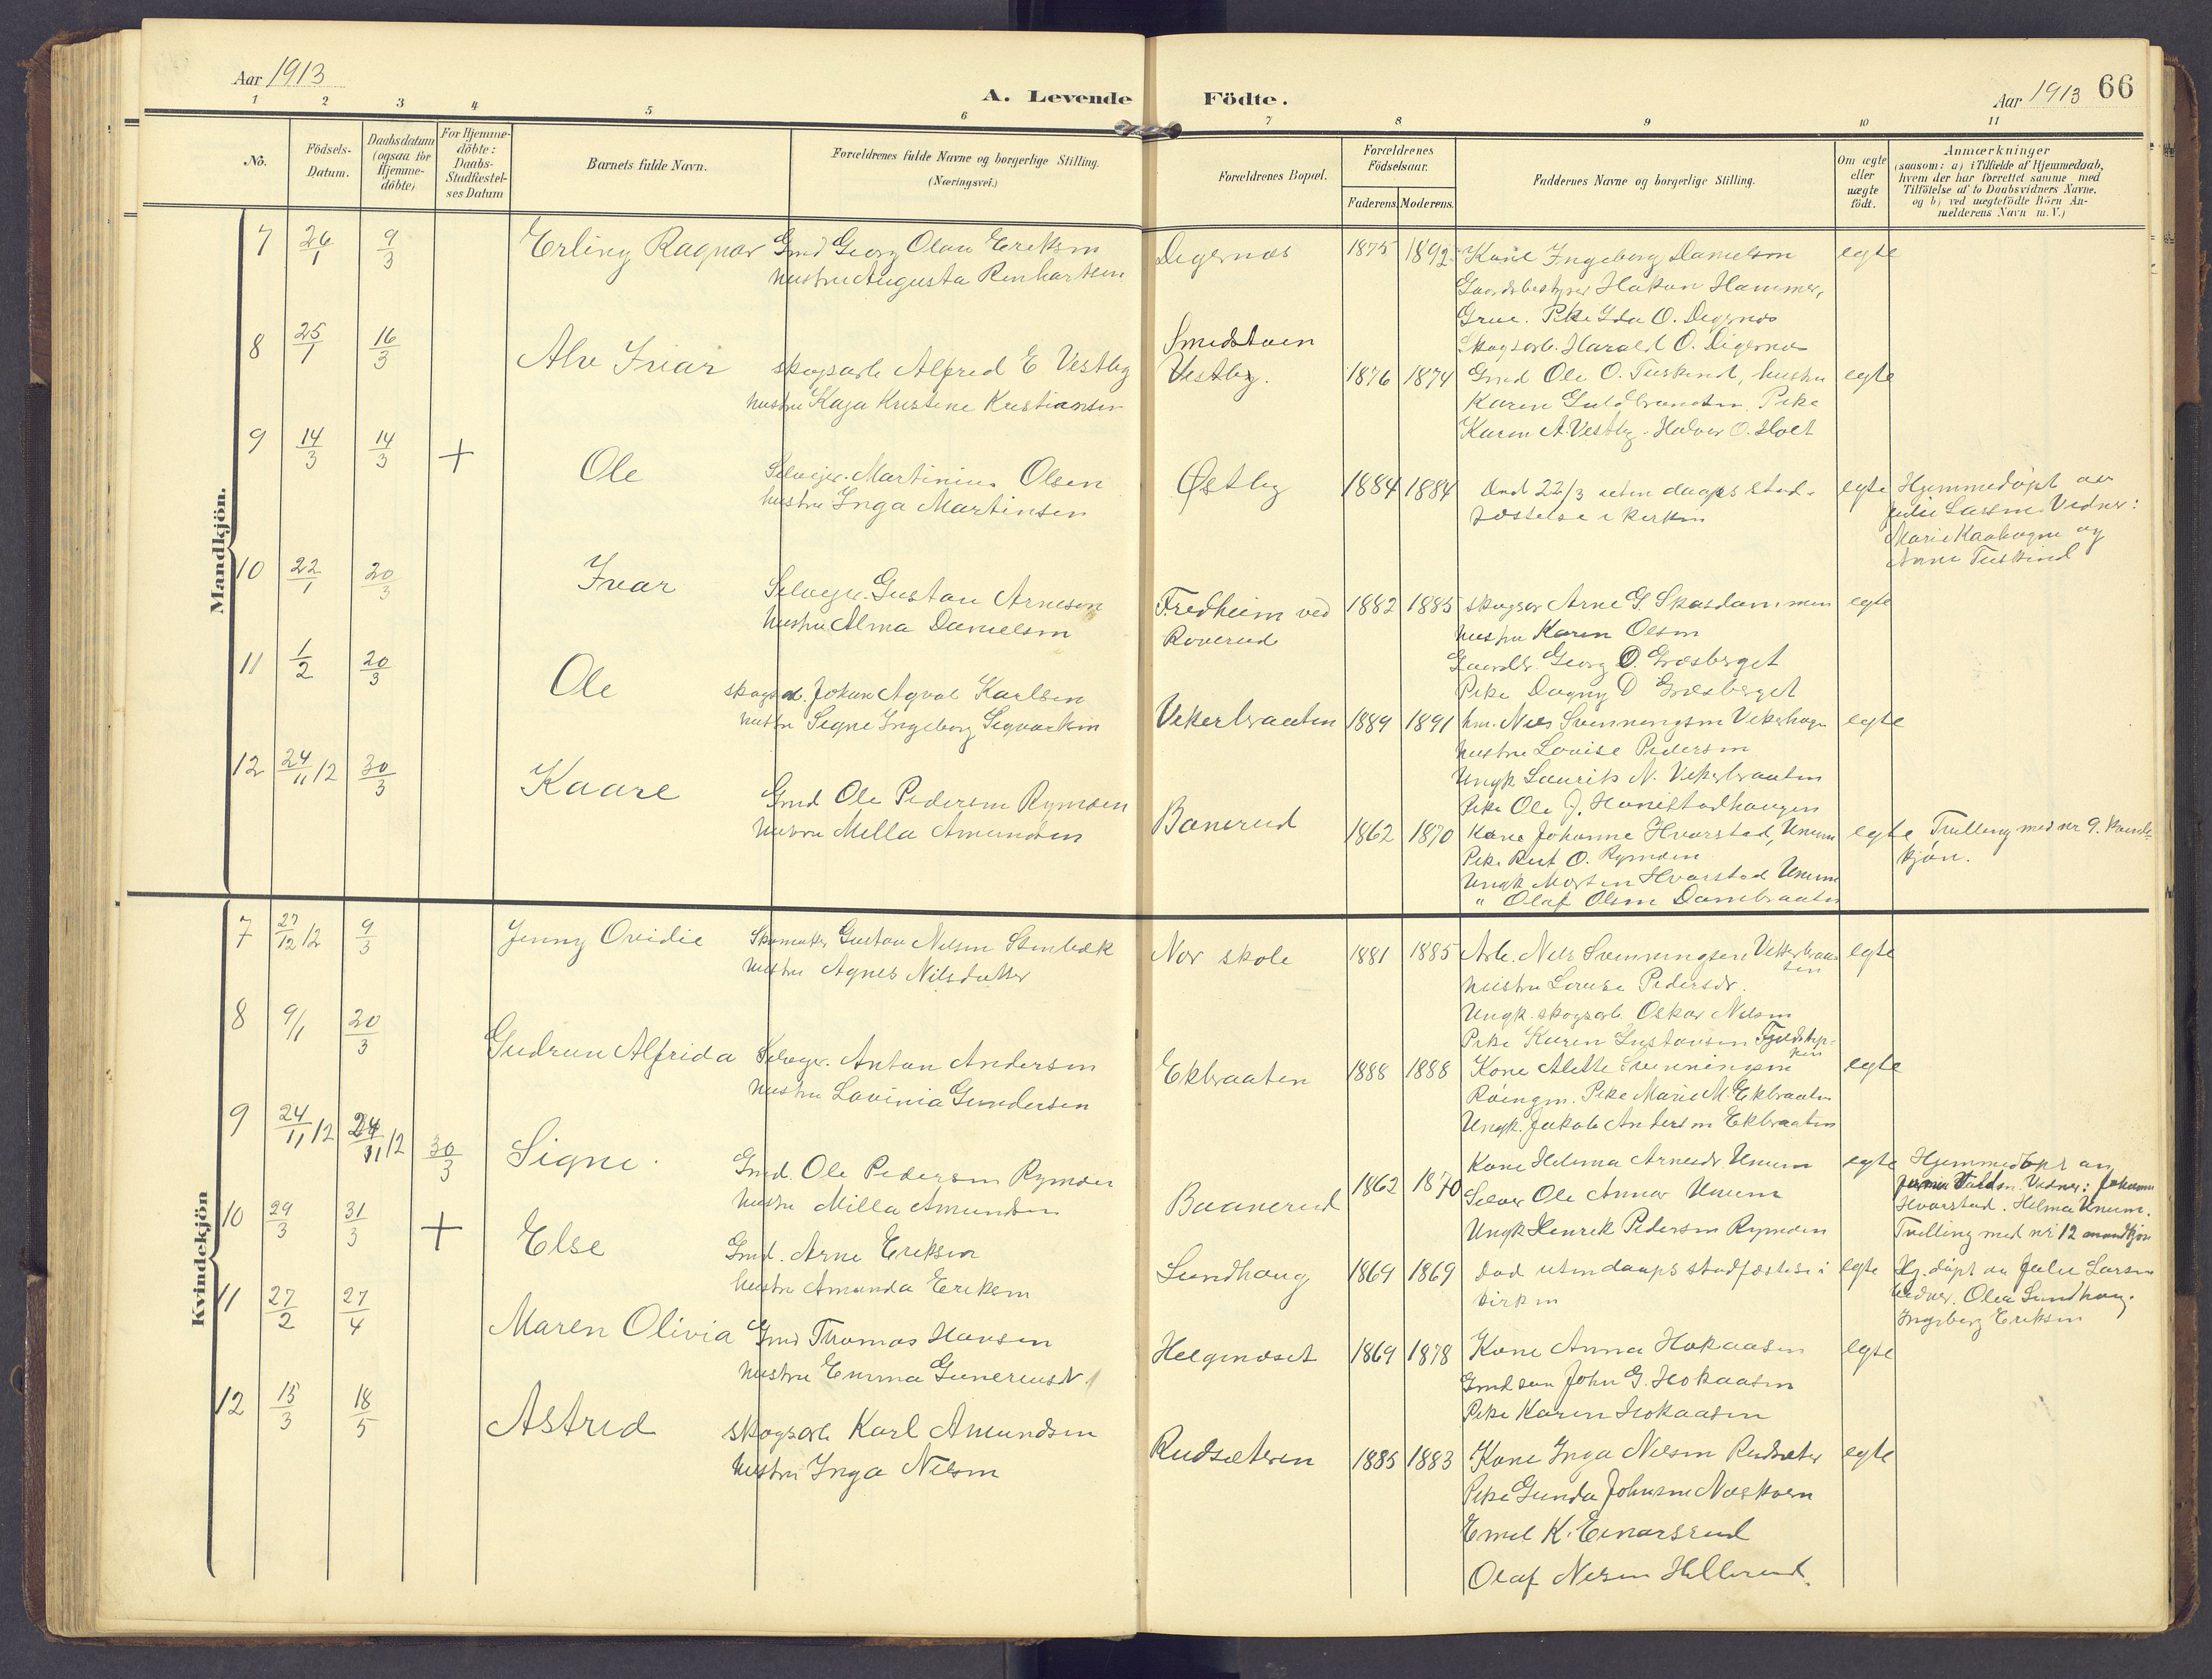 Aar 1913
A. Levende Födte.
Aar 1913 66
1 2 3 4 5 6 7 8 9 10 11
No.
Födsels-Datum.
Daabsdatum (ogsaa for Hjemme-döbte)
For Hjemme-döbte: Daabs-Stadfæstel-ses Datum
Barnets fulde Navn.
Forældrenes fulde Navne og borgerlige Stilling.
(Næringsvei.)
Forældrenes Bopæl.
Forældrenes Födselsaar.
Faderens. Moderens.
Faddernes Navne og borgerlige Stilling.
Om ægte eller uægte födt.
Anmærkninger
(saasom: a) i Tilfælde af Hjemmedaab,
hvem der har forrettet samme med
Tilföielse af to Daabsvidners Navne,
og b) ved uægtefödte Börn An-
melderens Navn m.V.)
Mandkjön.
7 26/1 9/3 Erling Ragnar Gmd Georg Olau Eriksen Digernes 1875 1892 Kone Ingeborg Danielsen egte
hustru Augusta Renhartsen Gaardsbestyrer Hakon Hammer,
Grue. Pike Ida O. Digernes
Skogsarb. Harald O. Digernes
8 25/1 16/3 Alv Ivar skogsarb Alfred E Vestby Smedstuen Vestby. 1876 1874 Gmd Ole O. Tuskind, hustru egte
hustru Kaja Kristine Kristiansen Karen Guldbrandsen. Pike
Karen A. Vestby. Halvor O. Holt
9 14/3 14/3 + Ole Selveier. Martinius Olsen Østby 1884 1884 Död 22/3 uten daaps stad- egte Hjemmedöpt av
hustru Inga Martinsen fæstelse i kirken Julie Larsen. Vidner:
Marie Kaahagen og
Anne Tuskind
10 22/1 20/3 Ivar Selveier. Gustav Arnesen Fredheim ved 1882 1885 skogsar Arne G. Skasdammen egte
hustru Alma Danielsen Roverud hustru Karen Olsen
Gaardbr. Georg O. Græsberget
Pike Dagny O Græsberget
11 1/2 20/3 Ole skogsa. Johan Agval Karlsen Vekerbraaten 1889 1891 hm. Nils Svenningsen Vekerhagen egte
hustru Signe Ingeborg Sigvartsen hustru Lovise Pedersen
Ungk Laurits N. Vekerbraaten
Pike Ole J. Hanestadhaugen
12 24/11 12 30/3 Kaare Gmd Ole Pedersen Rymoen Banerud 1862 1870 Kone Johanne Hvarstad, Unum egte Tvilling med nr 9. kvinde-
hustru Milla Amundsen Pike Rut O. Rymoen kjön.
Ungk Morten Hvarstad Unum
" Olaf Olsen Dambraaten
Kvindekjön
7 27/12 12 9/3 Jenny Ovidie Skomaker Gustav Nilsen Stenbæk Nor skole 1881 1885 Arb. Nils Svenningsen Vekerbraaten egte
hustru Agnes Nilsdatter hustru Louise Pedersdr.
Ungk. skogsarb Oskar Nilsen
Pike Karen Gustavsen
8 9/1 20/3 Gudrun Alfrida Selveier. Anton Andersen Ekbraaten 1888 1888 Kone Alette Svenningsen egte
hustru Lovinia Gundersen Röingen. Pike Marie M. Ekbraaten
Ungk. Jakob Andersen Ekbraaten
9 24/11 12 24/11 12 30/3 Signe. Gmd. Ole Pedersen Rymoen Baanerud 1862 1870 Kone Helma Arnesdr Unum egte Hjemmedöpt av
hustru Milla Amundsen Selveier Ole Annar Unum Vidner: Johanne
Ungk Henrik Pedersen Rymoen Hvarstad. Helma Unum.
Tvilling med nr 12 mandkjön
10 29/3 31/3 + Else Gmd. Arne Eriksen Lundhaug 1869 1869 död uten daaps stadfæstelse i egte Hj. döpt av Julie Larsen
hustru Amanda Eriksen kirken Vidner. Olea Lundhaug.
Ingeborg Eriksen
11 27/2 27/4 Maren Olivia Gmd Thomas Hansen Helgeneset 1869 1878 Kone Anna Hokaasen egte
hustru Emma Guneriusdr. Gmd søn John G. Hokaasen
Pike Karen Hokaasen
12 15/3 18/5 Astrid skogsarb Karl Amundsen Rudsæteren 1885 1883 Kone Inga Nilsen Rudsæter egte
hustru Inga Nilsen Pike Gunda Johnsen Næskoen
Emil K. Einarsrud
Olaf Nilsen Hillerud.